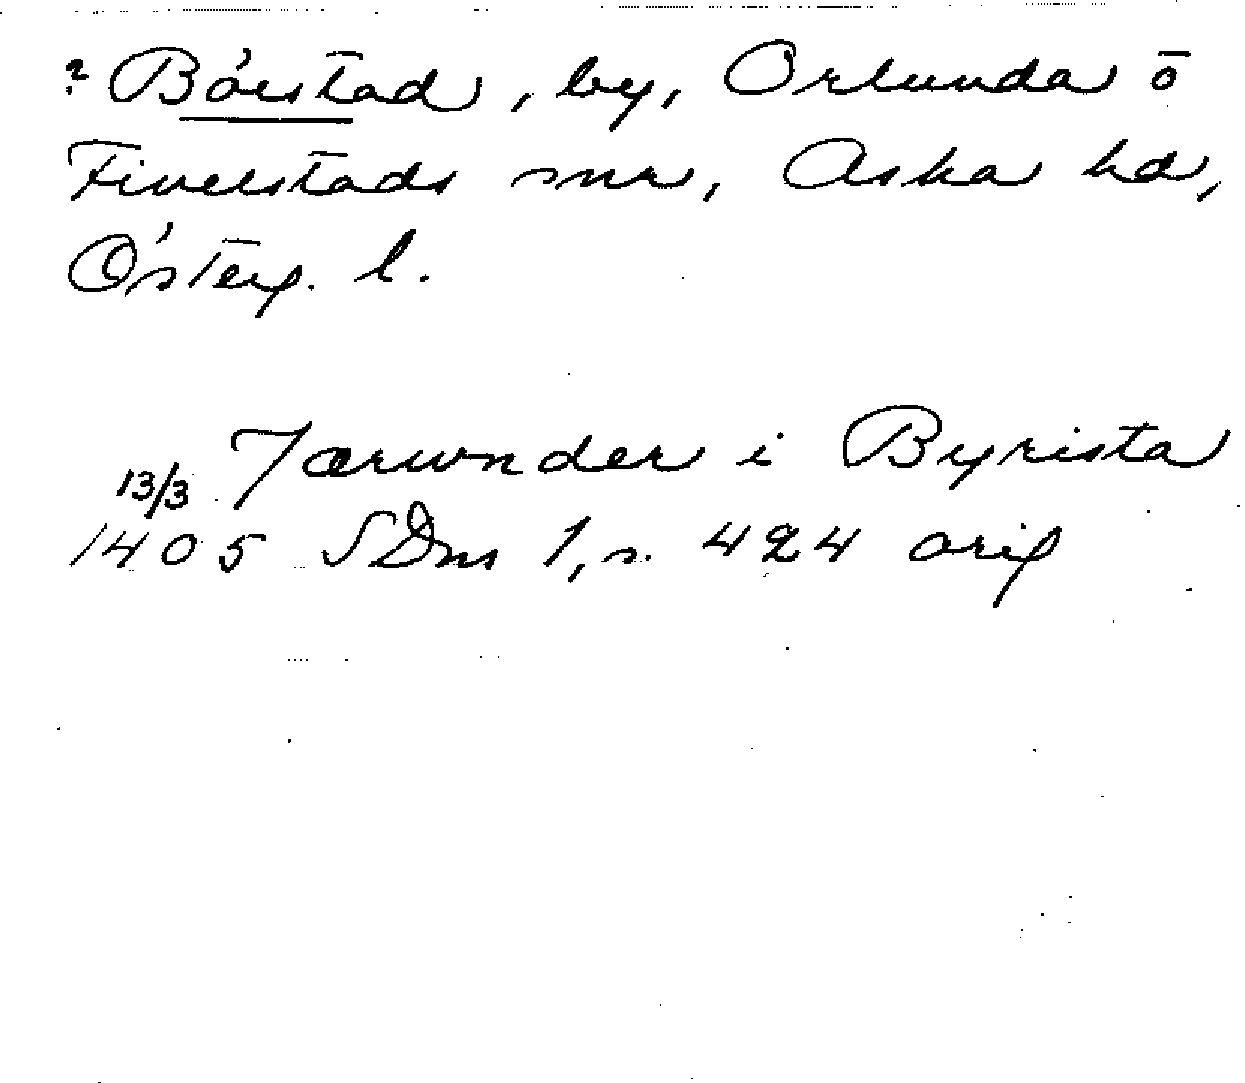 ? Börstad, by, Orlunda o
Fivelstads snr, Aska hd,
Österg. l.
Jærwnder i Byrista
13/3
1405 SDns 1, s. 424 orig